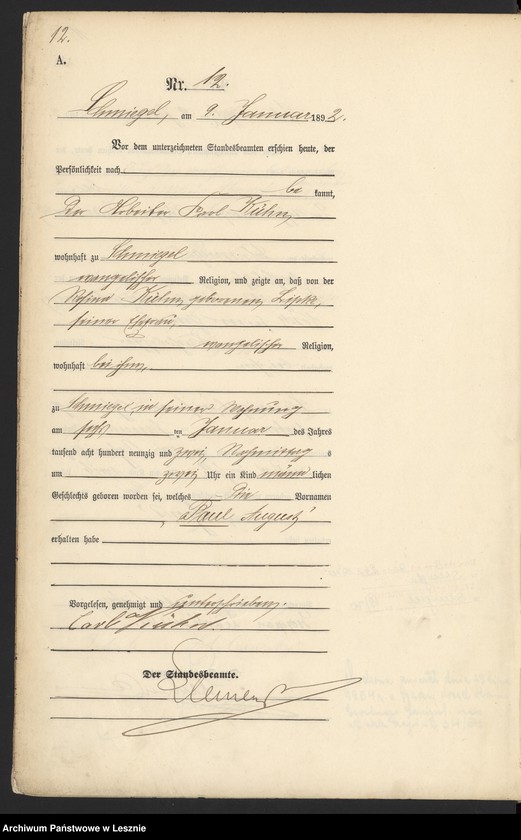 12.
A.
Nr. 12.
Schmiegel, am 9. Januar 1892.
Vor dem unterzeichneten Standesbeamten erschien heute, der
Persönlichkeit nach
be kannt,
der Arbeiter Karl Kühn,
wohnhaft zu Schmiegel
evangelischer Religion, und zeigte an, daß von der
Kühn, geborenen
seiner Ehefrau,
evangelischer Religion,
wohnhaft bei ihm,
zu Schmiegel, in seiner Wohnung
am den Januar des Jahres
tausend acht hundert neunzig und zwei, Nachmittag s
um zwei Uhr ein Kind männ lichen
Geschlechts geboren worden sei, welches die Vornamen
„Paul August"
erhalten habe
Vorgelesen, genehmigt und unterschrieben.
Carl
Der Standesbeamte.
Archiwum Państwowe w Lesznie